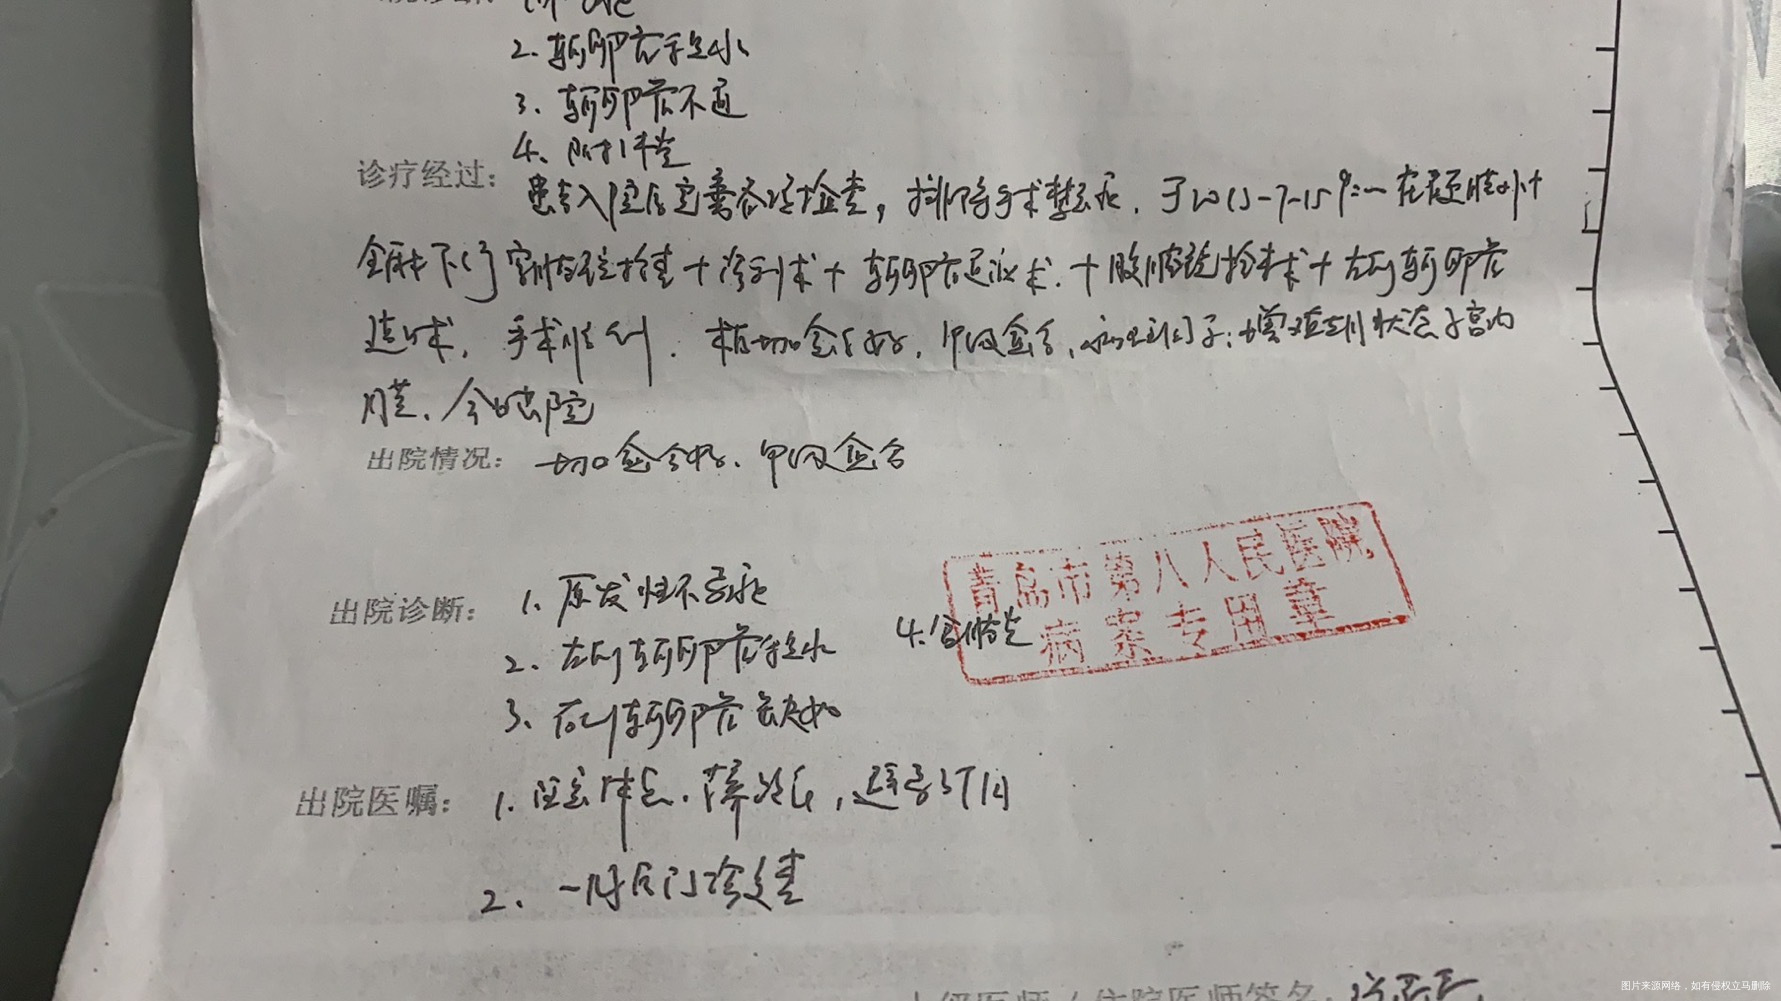 2. 输卵管积水
3. 输卵管不通
4. 附件炎
诊疗经过: 患者入院后完善各项检查, 排除手术禁忌, 于2015-7-15 在硬膜外+
全麻下行宫腔镜检查+诊刮术+输卵管通液术.+腹腔镜检查术+左侧输卵管
造口术, 手术顺利. 术后切口愈合好, 甲级愈合, 病理回示:增殖期状态子宫内
膜. 今日出院
出院情况: 切口愈合好. 甲级愈合
青岛市第八人民医院
病案专用章
出院诊断: 1. 原发性不孕症
2. 左侧输卵管积水 4.
3. 右侧输卵管缺如
出院医嘱: 1. 注意休息. 避孕3个月
2. 一月后门诊复查
图片来源网络，如有侵权立马删除